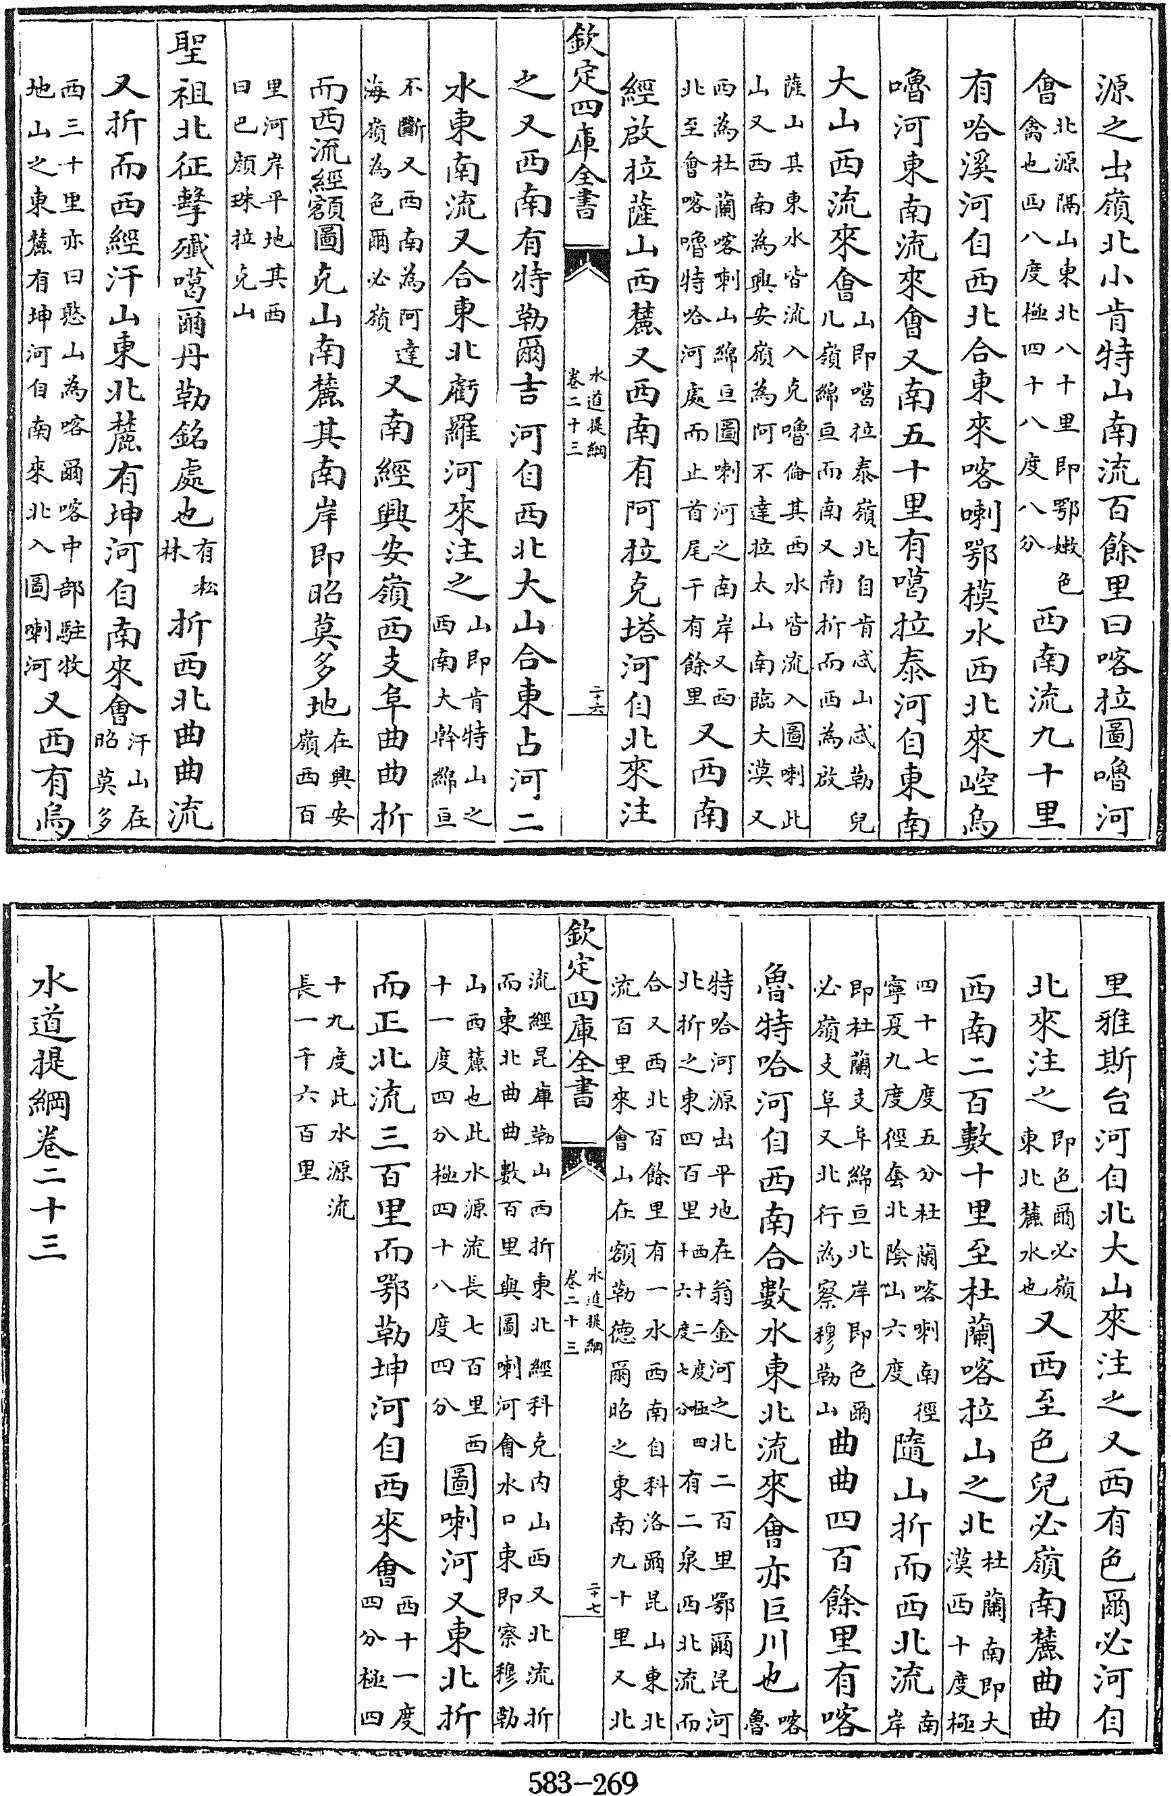 源之出嶺北小肯特山南流百餘里曰喀拉圖嚕河
會北源隅山東北八十里即鄂嫩色禽也西八度極四十八度八分西南流九十里
有哈溪河自西北合東來喀喇鄂模水西北來崆烏
嚕河東南流來會又南五十里有噶拉泰河自東南
大山西流來會山即噶拉泰嶺北自肯忒山忒勒兒几嶺綿亘而南又南折而西為啟
薩山其東水皆流入克嚕倫其西水皆流入圖喇此山又西南為興安嶺為阿不達拉太山南臨大漠又
西為杜蘭喀喇山綿亘圖喇河之南岸又西北至會喀嚕特哈河處而止首尾千有餘里又西南
經啟拉薩山西麓又西南有阿拉克塔河自北來注
欽定四庫全書
水道提綱
卷二十三
二十六
之又西南有特勒爾吉河自西北大山合東占河二
水東南流又合東北虧羅河來注之山即肯特山之西南大幹綿亘
不斷又西南為阿達海嶺為色爾必嶺又南經興安嶺西支阜曲曲折
而西流經額圖克山南麓其南岸即昭莫多地在興安嶺西百
里河岸平地其西曰巴顔珠拉克山
聖祖北征擊殲噶爾丹勒銘處也有松林折西北曲曲流
又折而西經汗山東北麓有坤河自南來會汗山在昭莫多
西三十里亦曰憨山為喀爾喀中部駐牧地山之東麓有坤河自南來北入圖喇河又西有烏
里雅斯台河自北大山來注之又西有色爾必河自
北來注之即色爾必嶺東北麓水也又西至色兒必嶺南麓曲曲
西南二百數十里至杜蘭喀拉山之北杜蘭南即大漠西十度極
四十七度五分杜蘭喀喇南徑寧夏九度徑套北陰山六度隨山折而西北流南岸
即杜蘭支阜綿亘北岸即色爾必嶺支阜又北行為察穆勒山曲曲四百餘里有喀
魯特哈河自西南合數水東北流來會亦巨川也喀魯
特哈河源出平地在翁金河之北二百里鄂爾昆河北折之東四百里西十二度極四十六度七分有二泉西北流而
合又西北百餘里有一水西南自科洛爾昆山東北流百里來會山在額勒德爾昭之東南九十里又北
欽定四庫全書
水道提綱
卷二十三
二十七
流經昆庫勒山西折東北經科克内山西又北流折而東北曲曲數百里與圖喇河會水口東即察穆勒
山西麓也此水源流長七百里西十一度四分極四十八度四分圖喇河又東北折
而正北流三百里而鄂勒坤河自西來會西十一度四分極四
十九度此水源流長一千六百里
水道提綱卷二十三
583-269